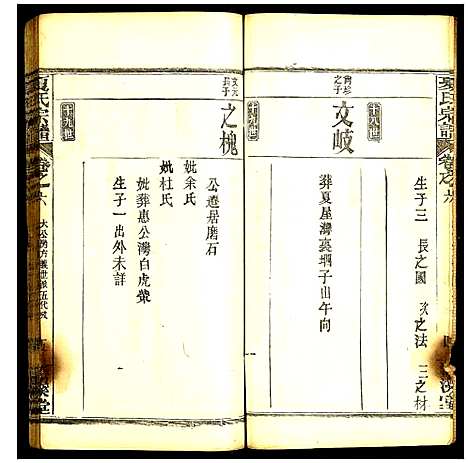 夏氏宗譜
卷之六
生子三 長之國 次之法 三之材
之子
文岐
十八世
葬夏屋灣裏塆子山午向
文元
長子
之槐
十九世
公遷居磨石
妣余氏
妣杜氏
妣葬惠公灣白虎嘴
生子一出外未詳
夏氏宗譜
卷之六
大公房方義世派五代
堂